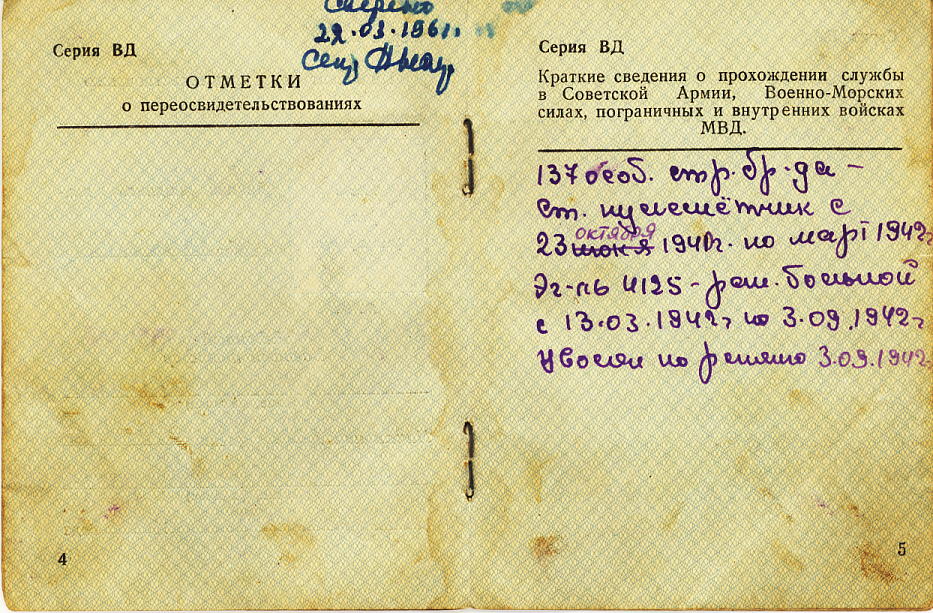 Сверено
22.03.1961г.
Серия ВД
ОТМЕТКИ
о переосвидетельствованиях
4
Серия ВД
Краткие сведения о прохождении службы
в Советской Армии, Военно-Морских
силах, пограничных и внутренних войсках
МВД.
137 особ. стр. бр-да –
Ст. пулемётчик с
октября
23 июня 1941г. по март 1942г
Эг-ль 4125 - ран. больной
с 13.03.1942г по 3.09.1942г
Уволен по ранению 3.09.1942г.
5